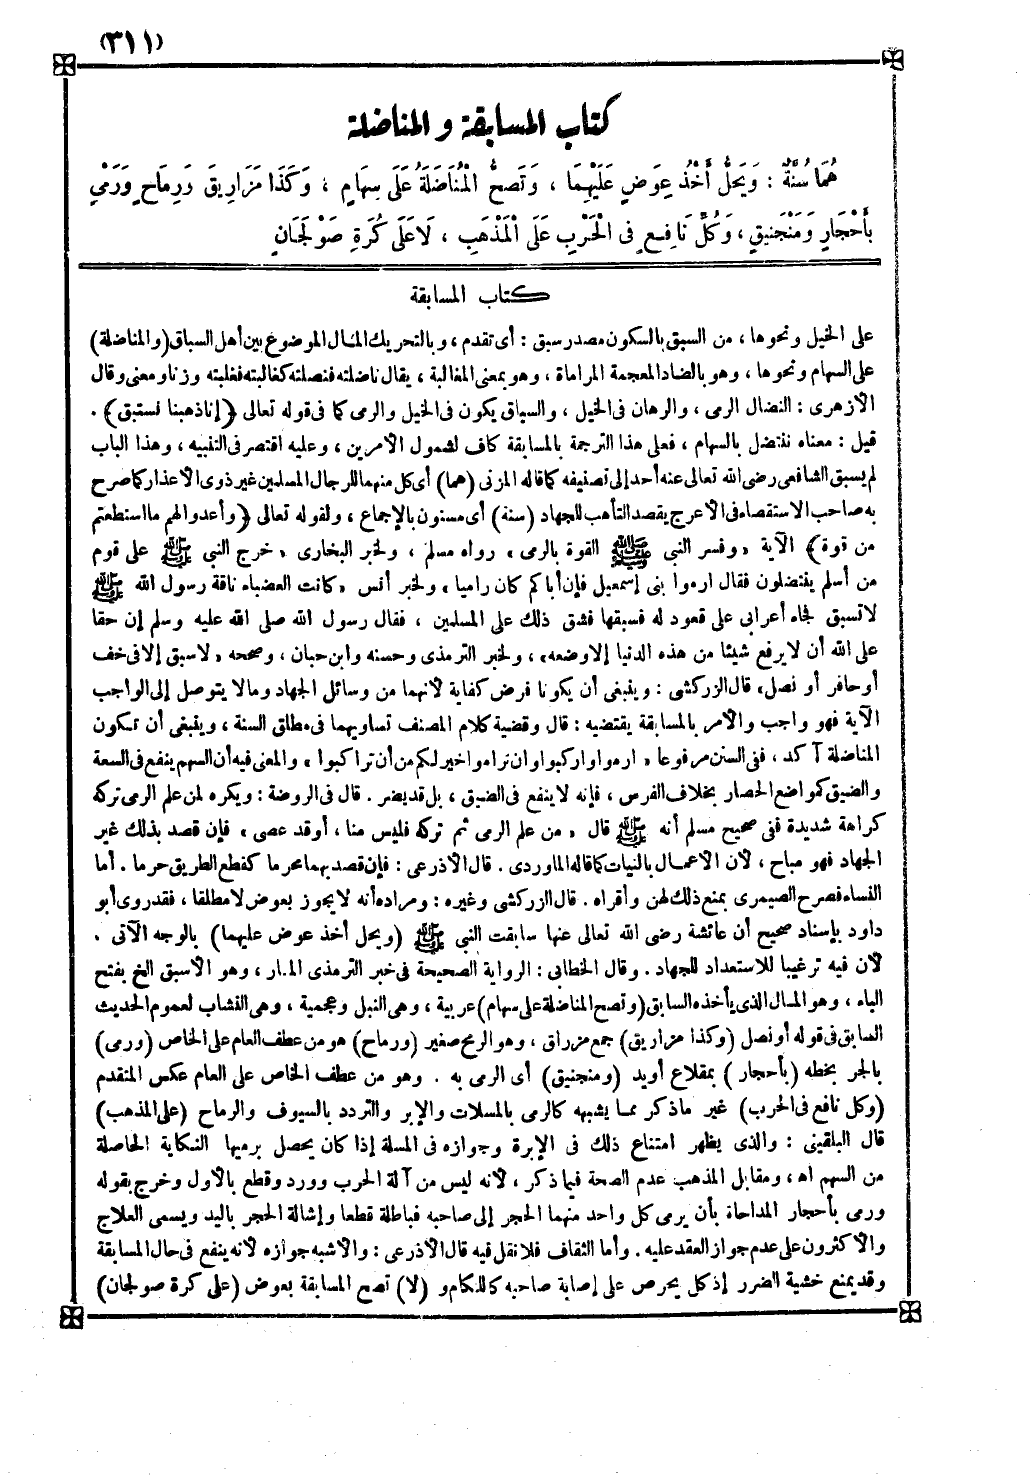 (٣١١)
كتاب المسابقة والمناضلة
هُمَا سُنَّةٌ : وَيَحِلُّ أَخْذُ عِوَضٍ عَلَيْهِمَا ، وَتَصِحُّ الْمُنَاضَلَةُ عَلَى سِهَامٍ ، وَكَذَا مَزَارِيقَ وَرِمَاحٍ وَرَمْيٍ
بِأَحْجَارٍ وَمَنْجَنِيقٍ ، وَكُلِّ نَافِعٍ فِى الْحَرْبِ عَلَى الْمَذْهَبِ ، لَا عَلَى كُرَةِ صَوْلَجَانٍ
كتاب المسابقة
على الخيل ونحوها ، من السبق بالسكون مصدر سبق : أى تقدم ، وبالتحريك المال الموضوع بين أهل السباق (والمناضلة)
على السهام ونحوها ، وهو بالضاد المعجمة المراماة ، وهو بمعنى المغالبة ، يقال ناضلته فنضلته كغالبته فغلبته وزنا ومعنى وقال
الأزهرى : النضال الرمى ، والرهان فى الخيل ، والسباق يكون فى الخيل والرمى كما فى قوله تعالى ﴿إنا ذهبنا نستبق﴾ .
قيل : معناه ننتضل بالسهام ، فعلى هذا الترجمة بالمسابقة كاف لشمول الأمرين ، وعليه اقتصر فى التنبيه ، وهذا الباب
لم يسبق الشافعى رضى الله تعالى عنه أحد إلى تصنيفه كما قاله المزنى (هما) أى كل منهما للرجال المسلمين غير ذوى الأعذار كما صرح
به صاحب الاستقصاء فى الأعرج بقصد التأهب للجهاد (سنة) أى مسنون بالإجماع ، ولقوله تعالى ﴿وأعدوا لهم ما استطعتم
من قوة﴾ الآية «وفسر النبى ﷺ القوة بالرمى» رواه مسلم ، ولخبر البخارى «خرج النبى ﷺ على قوم
من أسلم ينتضلون فقال ارموا بنى إسمعيل فإن أباكم كان راميا» ولخبر أنس «كانت العضباء ناقة رسول الله ﷺ
لاتسبق فجاء أعرابى على قعود له فسبقها فشق ذلك على المسلمين ، فقال رسول الله صلى الله عليه وسلم إن حقا
على الله أن لا يرفع شيئا من هذه الدنيا إلا وضعه» ، ولخبر الترمذى وحسنه وابن حبان ، وصححه «لاسبق إلا فى خف
أو حافر أو نصل» قال الزركشى : وينبغى أن يكونا فرض كفاية لأنهما من وسائل الجهاد ومالا يتوصل إلى الواجب
الآية فهو واجب والأمر بالمسابقة يقتضيه : قال وقضية كلام المصنف تساويهما فى مطلق السنة ، وينبغى أن تكون
المناضلة آكد ، ففى السنن مرفوعا «ارموا واركبوا وان تراموا خير لكم من أن تراكبوا» والمعنى فيه أن السهم ينفع فى السعة
والضيق كمواضع الحصار بخلاف الفرس ، فإنه لا ينفع فى الضيق ، بل قد يضر . قال فى الروضة : ويكره لمن علم الرمى تركه
كراهة شديدة ففى صحيح مسلم أنه ﷺ قال «من علم الرمى ثم تركه فليس منا ، أوقد عصى» فإن قصد بذلك غير
الجهاد فهو مباح ، لأن الأعمال بالنيات كما قاله الماوردى . قال الأذرعى : فإن قصد بهما محرما كقطع الطريق حرما . أما
النساء فصرح الصيمرى بمنع ذلك لهن وأقراه . قال الزركشى وغيره : ومراده أنه لا يجوز بعوض لا مطلقا ، فقد روى أبو
داود بإسناد صحيح أن عائشة رضى الله تعالى عنها سابقت النبى ﷺ (ويحل أخذ عوض عليهما) بالوجه الآتى .
لأن فيه ترغيبا للاستعداد للجهاد . وقال الخطابى : الرواية الصحيحة فى خبر الترمذى المار ، وهو لاسبق الخ بفتح
الباء ، وهو المال الذى يأخذه السابق (وتصح المناضلة على سهام) عربية ، وهى النبل وعجمية ، وهى النشاب لعموم الحديث
السابق فى قوله أو نصل (وكذا مزاريق) جمع مزراق ، وهو الرمح صغير (ورماح) هو من عطف العام على الخاص (ورمى)
بالجر بخطه (بأحجار) بمقلاع أويد (ومنجنيق) أى الرمى به . وهو من عطف الخاص على العام عكس المتقدم
(وكل نافع فى الحرب) غير ماذكر مما يشبهه كالرمى بالمسلات والإبر والتردد بالسيوف والرماح (على المذهب)
قال البلقينى : والذى يظهر امتناع ذلك فى الإبرة وجوازه فى المسلة إذا كان يحصل برميها النكاية الحاصلة
من السهم اه ، ومقابل المذهب عدم الصحة فيما ذكر ، لأنه ليس من آلة الحرب وورد وقطع بالأول وخرج بقوله
ورمى بأحجار المداحاة بأن يرمى كل واحد منهما الحجر إلى صاحبه فباطلة قطعا وإشالة الحجر باليد ويسمى العلاج
والأكثرون على عدم جواز العقد عليه . وأما الثقاف فلا نقل فيه قال الأذرعى : والأشبه جوازه لأنه ينفع فى حال المسابقة
وقد يمنع خشية الضرر إذ كل يحرص على إصابة صاحبه كاللكام و (لا) تصح المسابقة بعوض (على كرة صولجان)